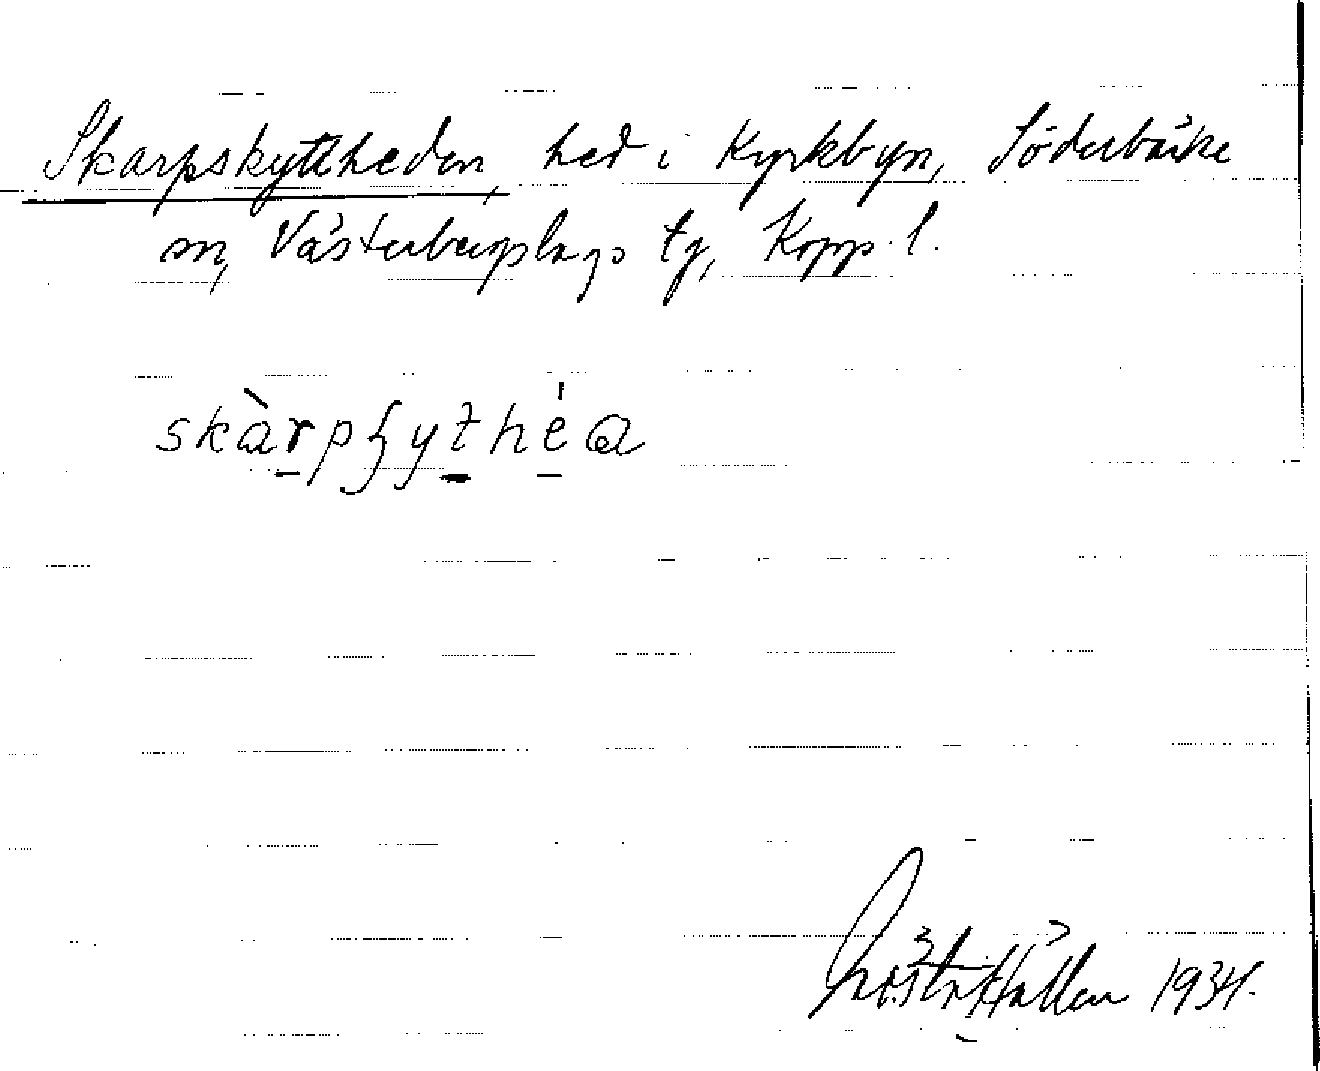 Skarpskyttheden, hed i Kyrkbyn, Söderbärke
sn, Västerbergslags tg, Kopp. l.
skàrpʃythéa
Gösta Hallen 1934.